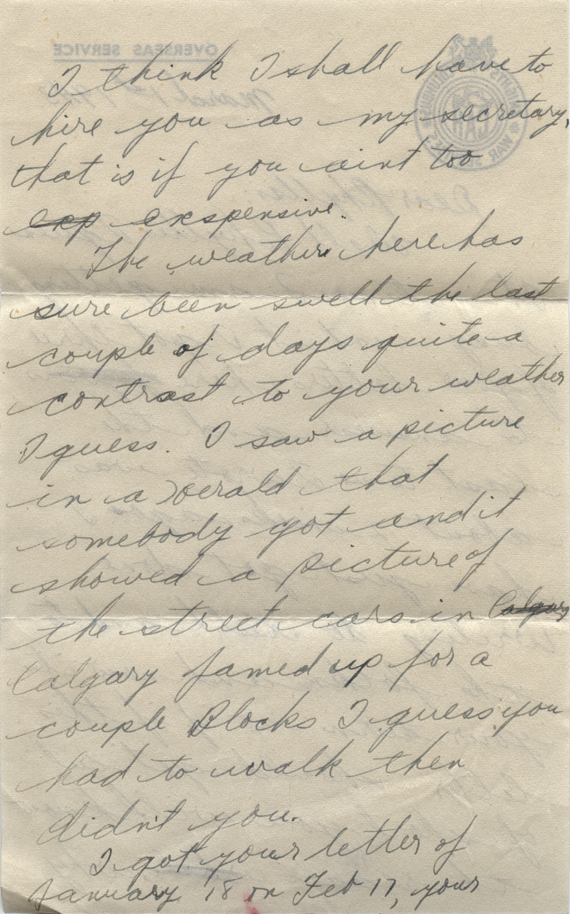 OVERSEAS SERVICE
I think I shall have to
hire you as my secretary,
that is if you aint too
exp exspensive.
The weather here has
sure been swell the last
couple of days quite a
contrast to your weather
I guess. I saw a picture
in a Herald that
somebody got and it
showed a picture of
the street cars in Calgary
Calgary famed up for a
couple Blocks I guess you
had to walk then
didn't you.
I got your letter of
January 18 on Feb 17, your